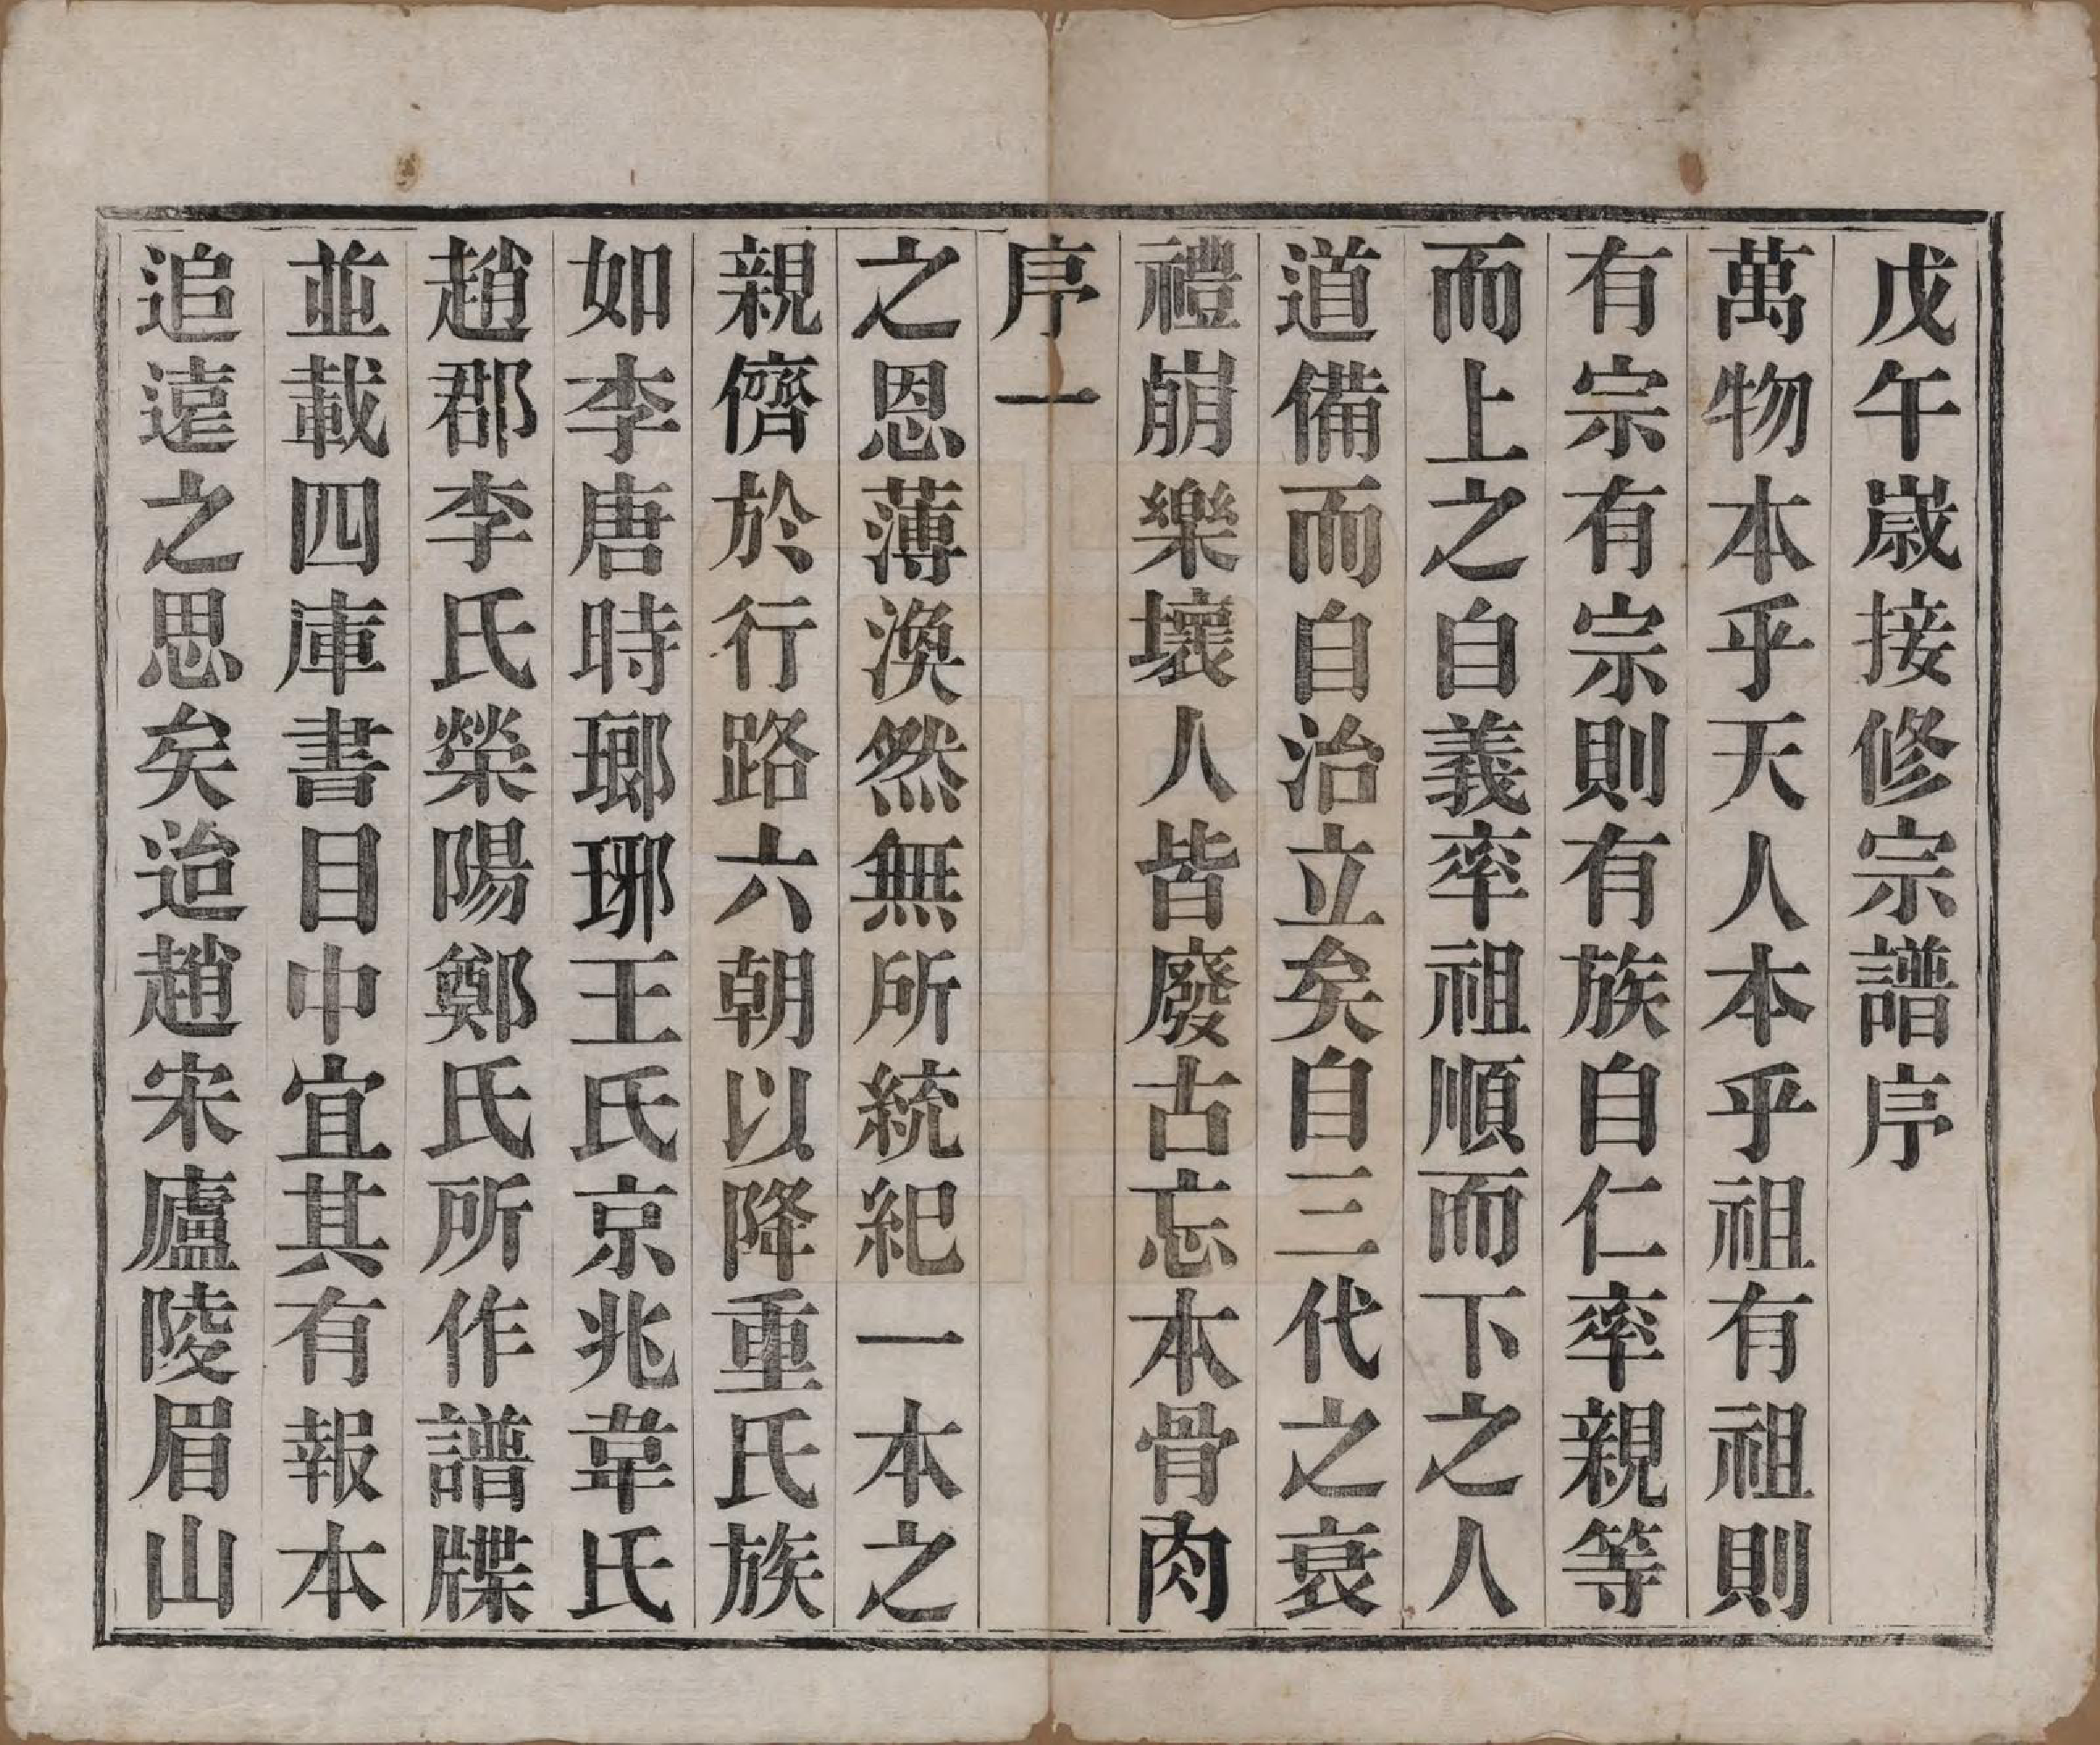 戊午嵗接修宗譜序
萬物本乎天人本乎祖有祖則
有宗有宗則有族自仁率親等
而上之自義率祖順而下之人
道備而自治立矣自三代之衰
禮崩樂壞人皆廢古忘本骨肉
序一
之恩薄渙然無所統紀一本之
親儕於行路六朝以降重氏族
如李唐時瑯琊王氏京兆韋氏
趙郡李氏榮陽鄭氏所作譜牒
並載四庫書目中宜其有報本
追遠之思矣迨趙宋廬陵眉山